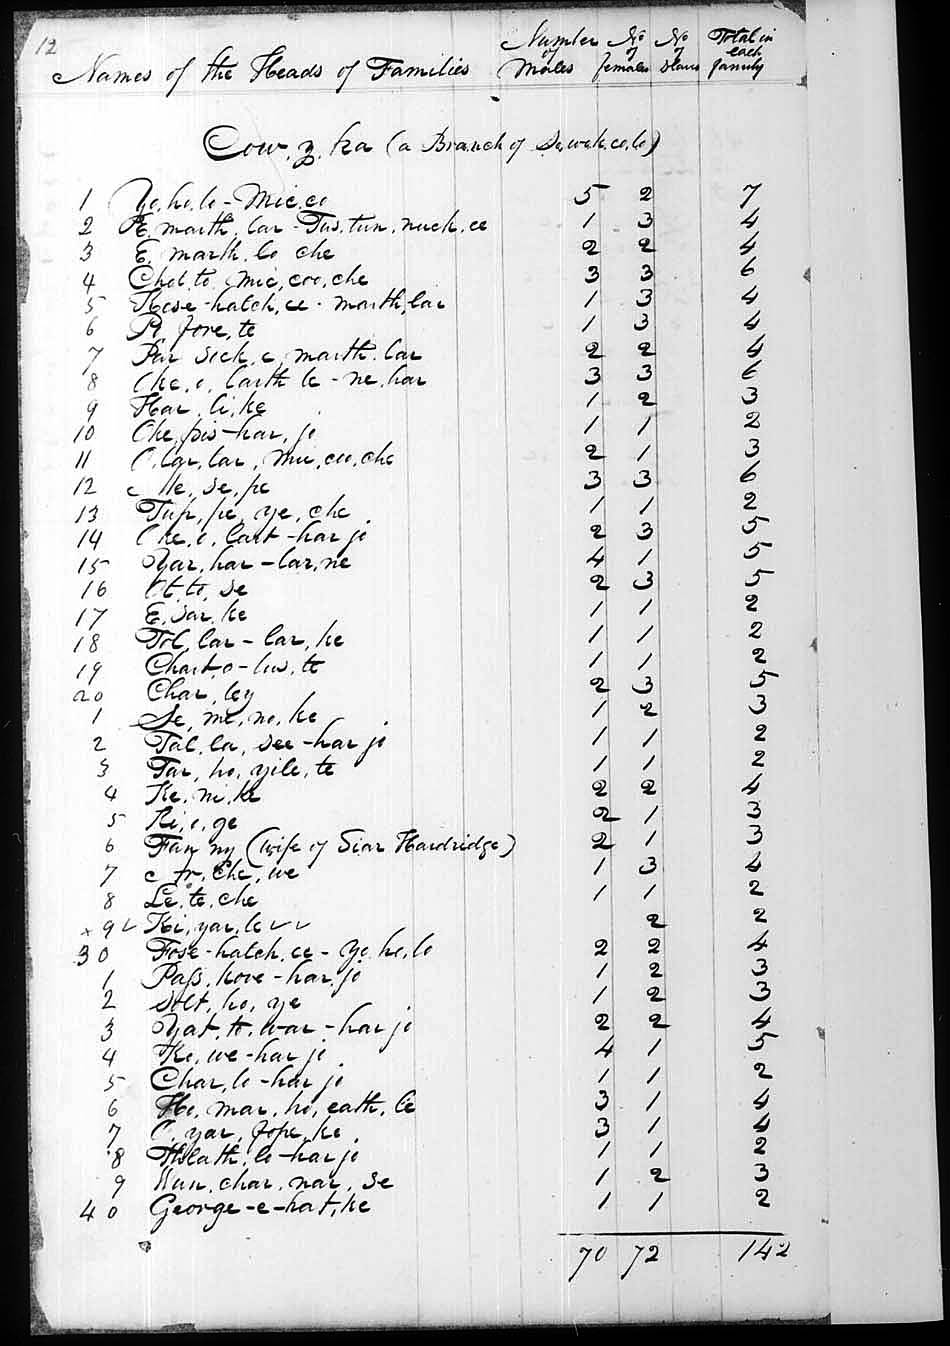 12
Names of the Heads of Families Number of Males No of females No of Slaves Total in each family
Cow.y.ka (a Branch of Se,wok,co,lo)
1 Yo.ho.lo - Mic.co 5 2 7
2 E. marth. lar - Tus.tun.nuck.ce 1 3 4
3 E, marth. lo che 2 2 4
4 Chol.to. Mic,coo,che 3 3 6
5 Kose-hatch,ce - marth,lar 1 3 4
6 fove,te 1 3 4
7 Par sick.e, marth.lar 2 2 4
8 Che,o, larth le - ne.har 3 3 6
9 Har, li,ke 1 2 3
10 Che,pis-har,jo 1 1 2
11 O,lar,lar, Mic,coo,che 2 1 3
12 Ne, se, pe 3 3 6
13 Tup, pe, ye, che 1 1 2
14 Che,o,lart-har jo 2 3 5
15 Yar,har-lar,ne 4 1 5
16 Ot.to, se 2 3 5
17 E,sar,ke 1 1 2
18 Tol,lar-lar,ke 1 1 2
19 Chart,o-lus,te 1 1 2
20 Char,ley 2 3 5
1 Se,me,no,ke 1 2 3
2 Tal.la,see-har jo 1 1 2
3 Tar,ho,yile,te 1 1 2
4 Ke,ni,ke 2 2 4
5 Ki,o,ge 2 1 3
6 Fan ny (wife of Siar Hardridge) 2 1 3
7 che,we 1 3 4
8 Le,te,che 1 1 2
x 9 ✓ Ki,yar,le ✓ ✓ 2 2
30 Fose-hatch,ce-yo,ho,lo 2 2 4
1 Pass,hove-har,jo 1 2 3
2 Solt,ho,ye 1 2 3
3 Yat,to,war-har jo 2 2 4
4 Ko,we-har jo 4 1 5
5 Char,lo-har jo 1 1 2
6 Ho,mar,ho,eath,le 3 1 4
7 O,yar,fope,ke 3 1 4
8 Hslath,lo-har jo 1 1 2
9 Nun,char,nar,se 1 2 3
40 George-e-hot,ke 1 1 2
70 72 142